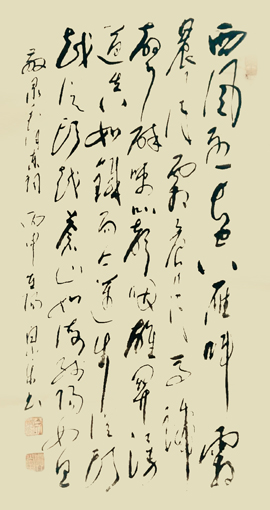 西风烈长空雁叫霜
晨月霜晨月马蹄
声碎喇叭声咽雄关漫
道真如铁而今迈步从头
越从头越苍山如海残阳如血
敬录毛泽东词 丙申 书